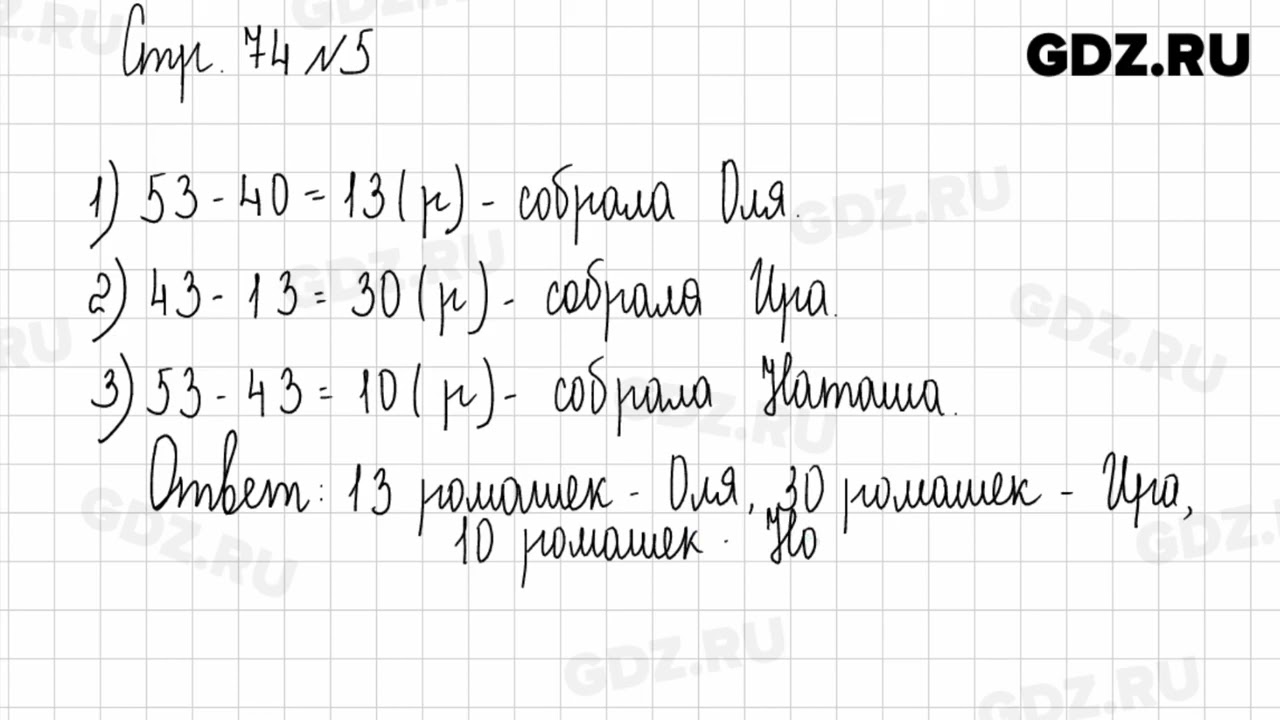 Стр. 74 №5
GDZ.RU
1) 53 - 40 = 13 (р) - собрала Оля.
2) 43 - 13 = 30 (р) - собрала Ира.
3) 53 - 43 = 10 (р) - собрала Наташа.
Ответ: 13 ромашек - Оля, 30 ромашек - Ира,
10 ромашек - На